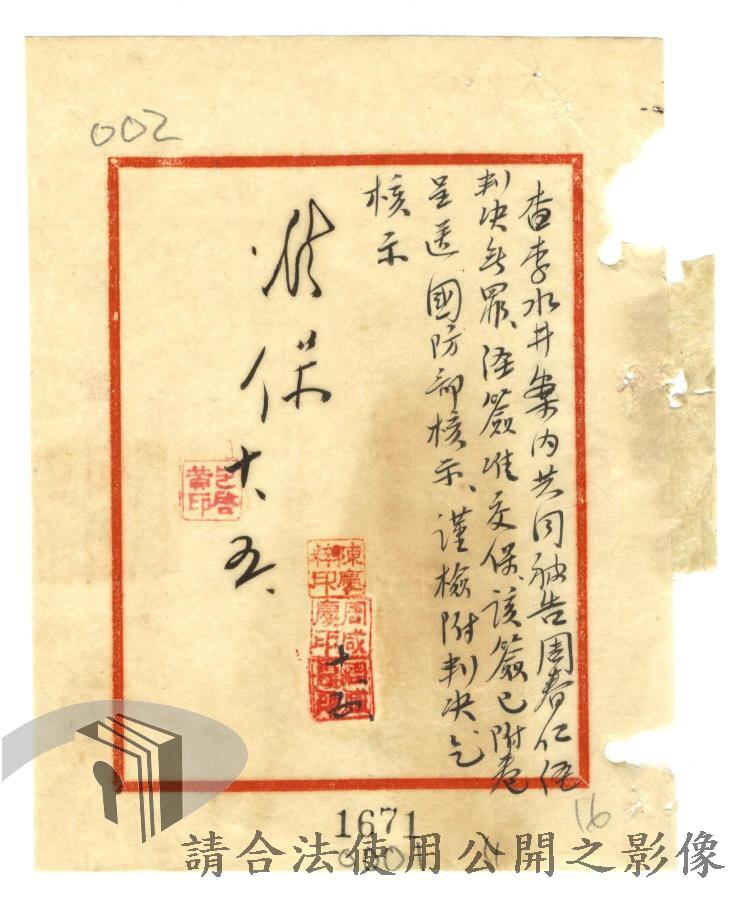 002
查李水井案內共同被告周春仁經
判決無罪、經簽准交保、該簽已附卷
呈送 國防部核示、謹檢附判決乞
核示
准
保
十、五、
陳慶
周咸慶印
十、五、
16
1671
請合法使用公開之影像